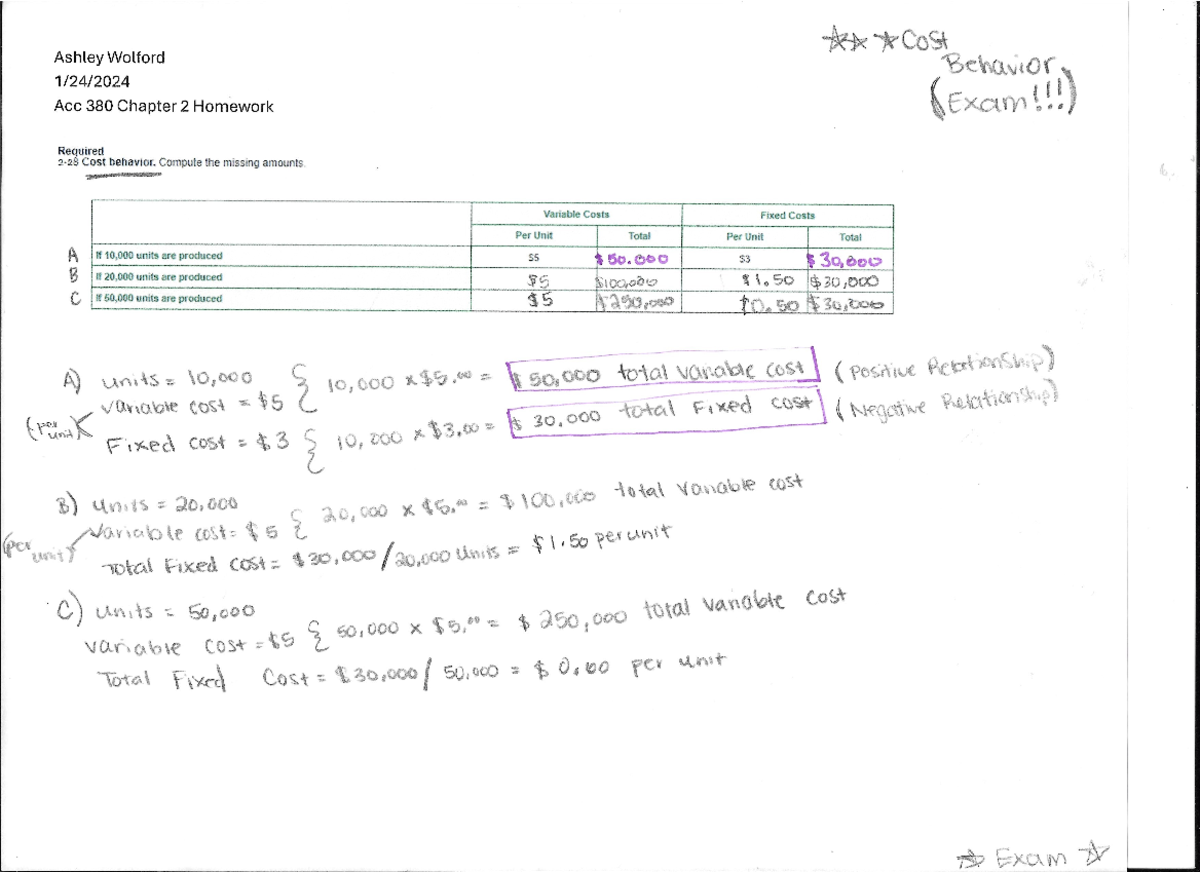 ☆☆ ☆ Cost
Behavior
(Exam!!!)
Ashley Wolford
1/24/2024
Acc 380 Chapter 2 Homework
Required
2-28 Cost behavior. Compute the missing amounts.
Variable Costs Fixed Costs
Per Unit Total Per Unit Total
A If 10,000 units are produced $5 $50.000 $3 $30,000
B If 20,000 units are produced $5 $100,000 $1.50 $30,000
C If 50,000 units are produced $5 $250,000 $0.50 $30,000
A) units = 10,000 { 10,000 x $5.00 = $50,000 total variable cost (Positive Relationship)
variable cost = $5
(per unit)
Fixed cost = $3 { 10,000 x $3.00 = $30.000 total Fixed cost (Negative Relationship)
B) units = 20,000
Variable cost = $5 { 20,000 x $5.00 = $100,000 total variable cost
(per unit)
Total Fixed cost = $30,000/20,000 units = $1.50 per unit
C) units = 50,000
variable cost = $5 { 50,000 x $5.00 = $250,000 total variable cost
Total Fixed Cost = $30,000/50,000 = $0.60 per unit
☆ Exam ☆